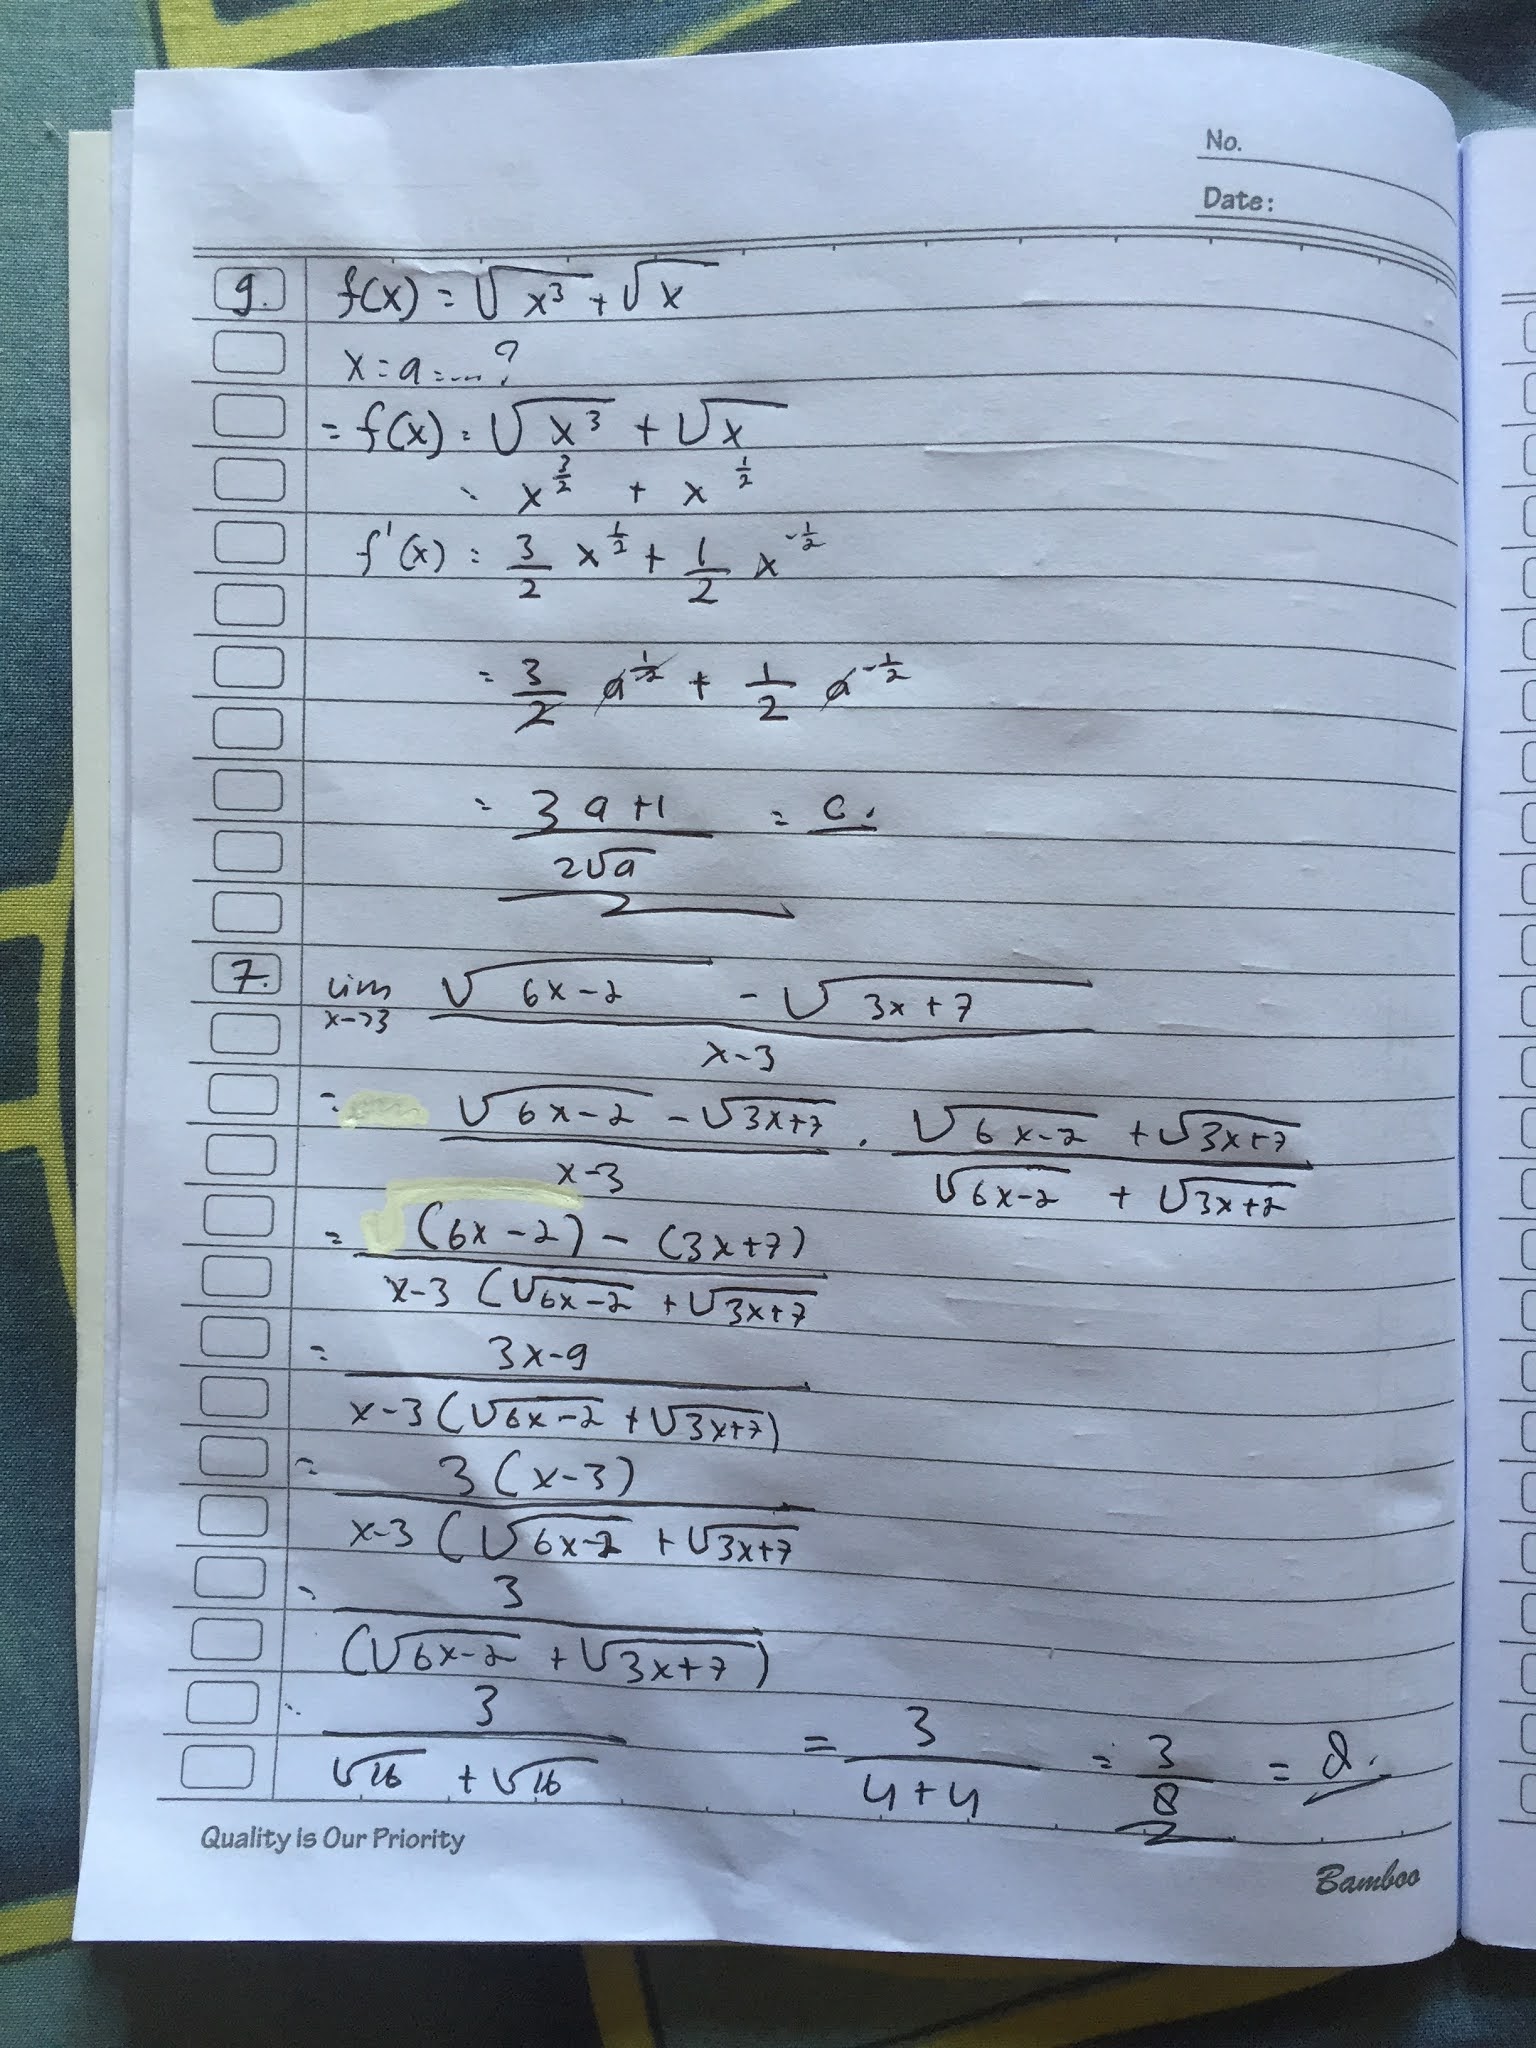 No.
Date:
9. f(x) = √x³ + √x
x = a = ... ?
= f(x) = √x³ + √x
= x^(3/2) + x^(1/2)
f'(x) = 3/2 x^(1/2) + 1/2 x^(-1/2)
= 3/2 a^(1/2) + 1/2 a^(-1/2)
= (3a+1)/(2√a) = c.
7. lim x->3 (√(6x-2) - √(3x+7))/(x-3)
= (√(6x-2) - √(3x+7))/(x-3) . (√(6x-2) + √(3x+7))/(√(6x-2) + √(3x+7))
= ((6x-2) - (3x+7))/(x-3 (√(6x-2) + √(3x+7))
= (3x-9)/(x-3 (√(6x-2) + √(3x+7)))
= 3(x-3)/(x-3 (√(6x-2) + √(3x+7))
= 3/(√(6x-2) + √(3x+7))
= 3/(√16 + √16) = 3/(4+4) = 3/8 = d.
Quality is Our Priority
Bamboo